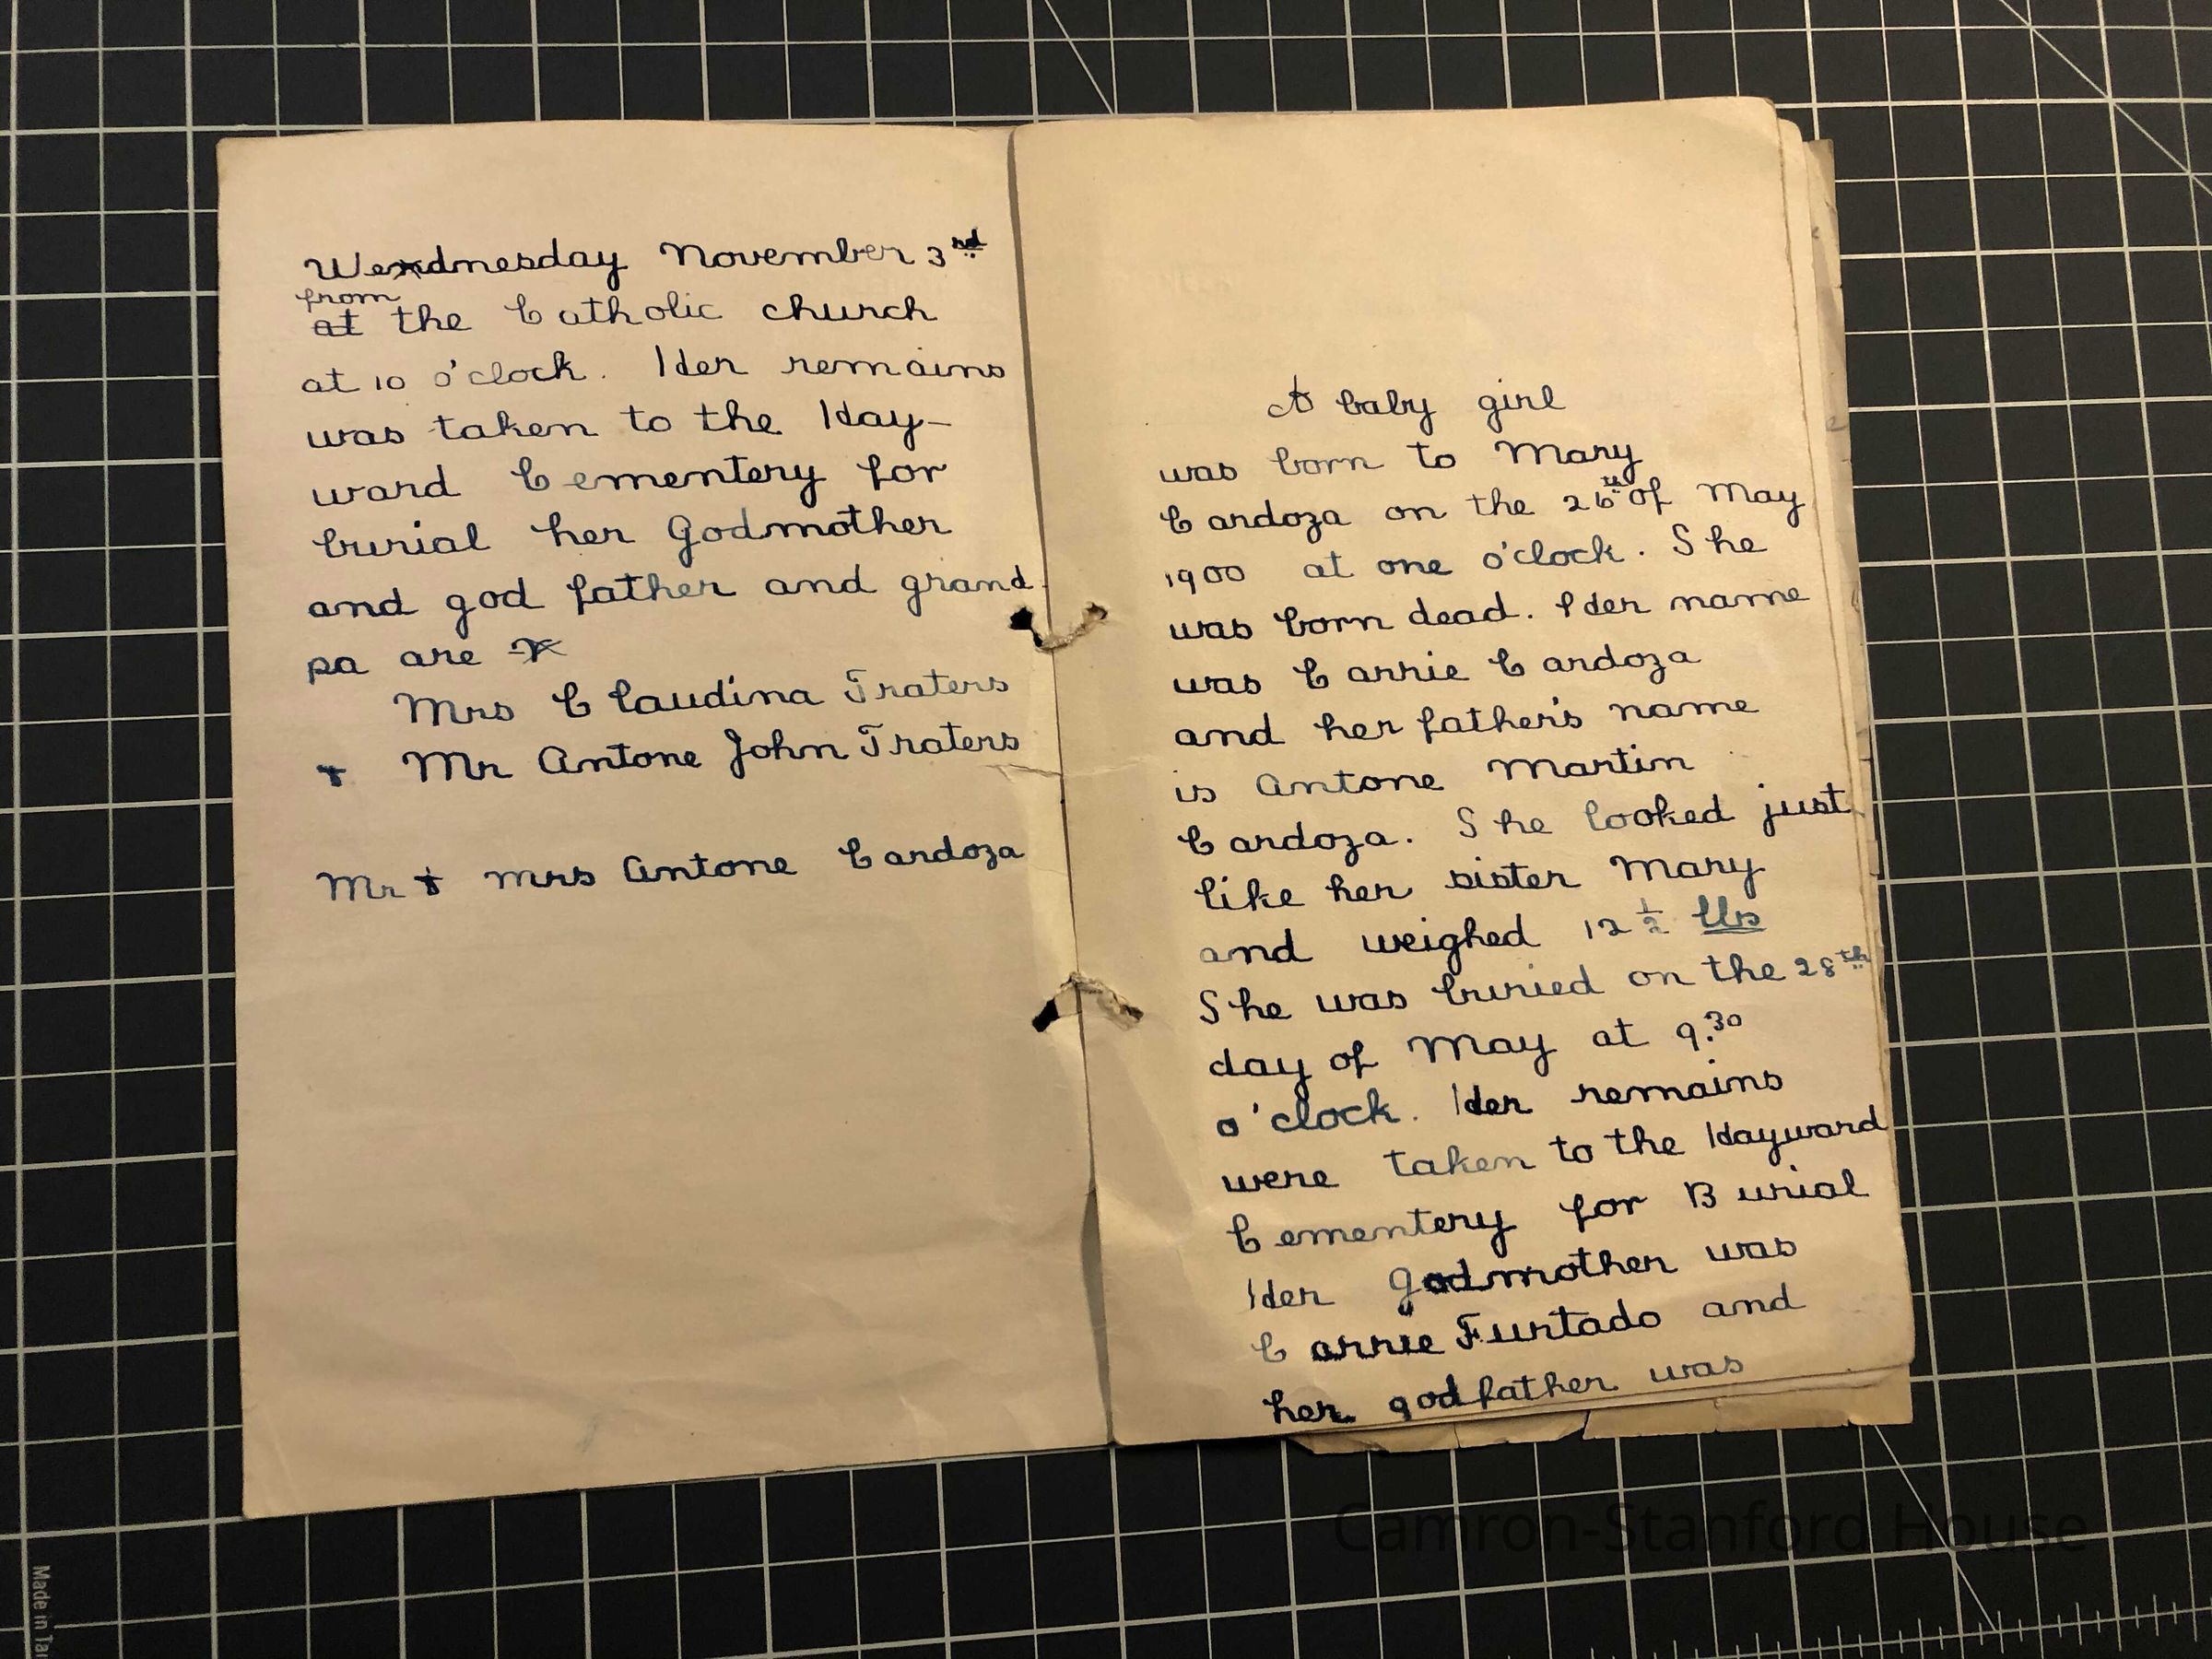 Wendnesday November 3rd
from
at the Catholic church
at 10 o'clock. Her remains
was taken to the Hay-
ward Cementery for
burial her Godmother
and god father and grand-
pa are
Mrs Claudina Fraters
+ Mr Antone John Fraters
Mr + Mrs Antone Cardoza
A baby girl
was born to Mary
Cardoza on the 26th of May
1900 at one o'clock. She
was born dead. Her name
was Carrie Cardoza
and her father's name
is Antone Martin
Cardoza. She looked just
like her sister Mary
and weighed 12 1/2 lbs
She was buried on the 28th
day of May at 9:30
o'clock. Her remains
were taken to the Hayward
Cementery for Burial
Her Godmother was
Carrie Furtado and
her godfather was
Camron-Stanford House
Made in Tai